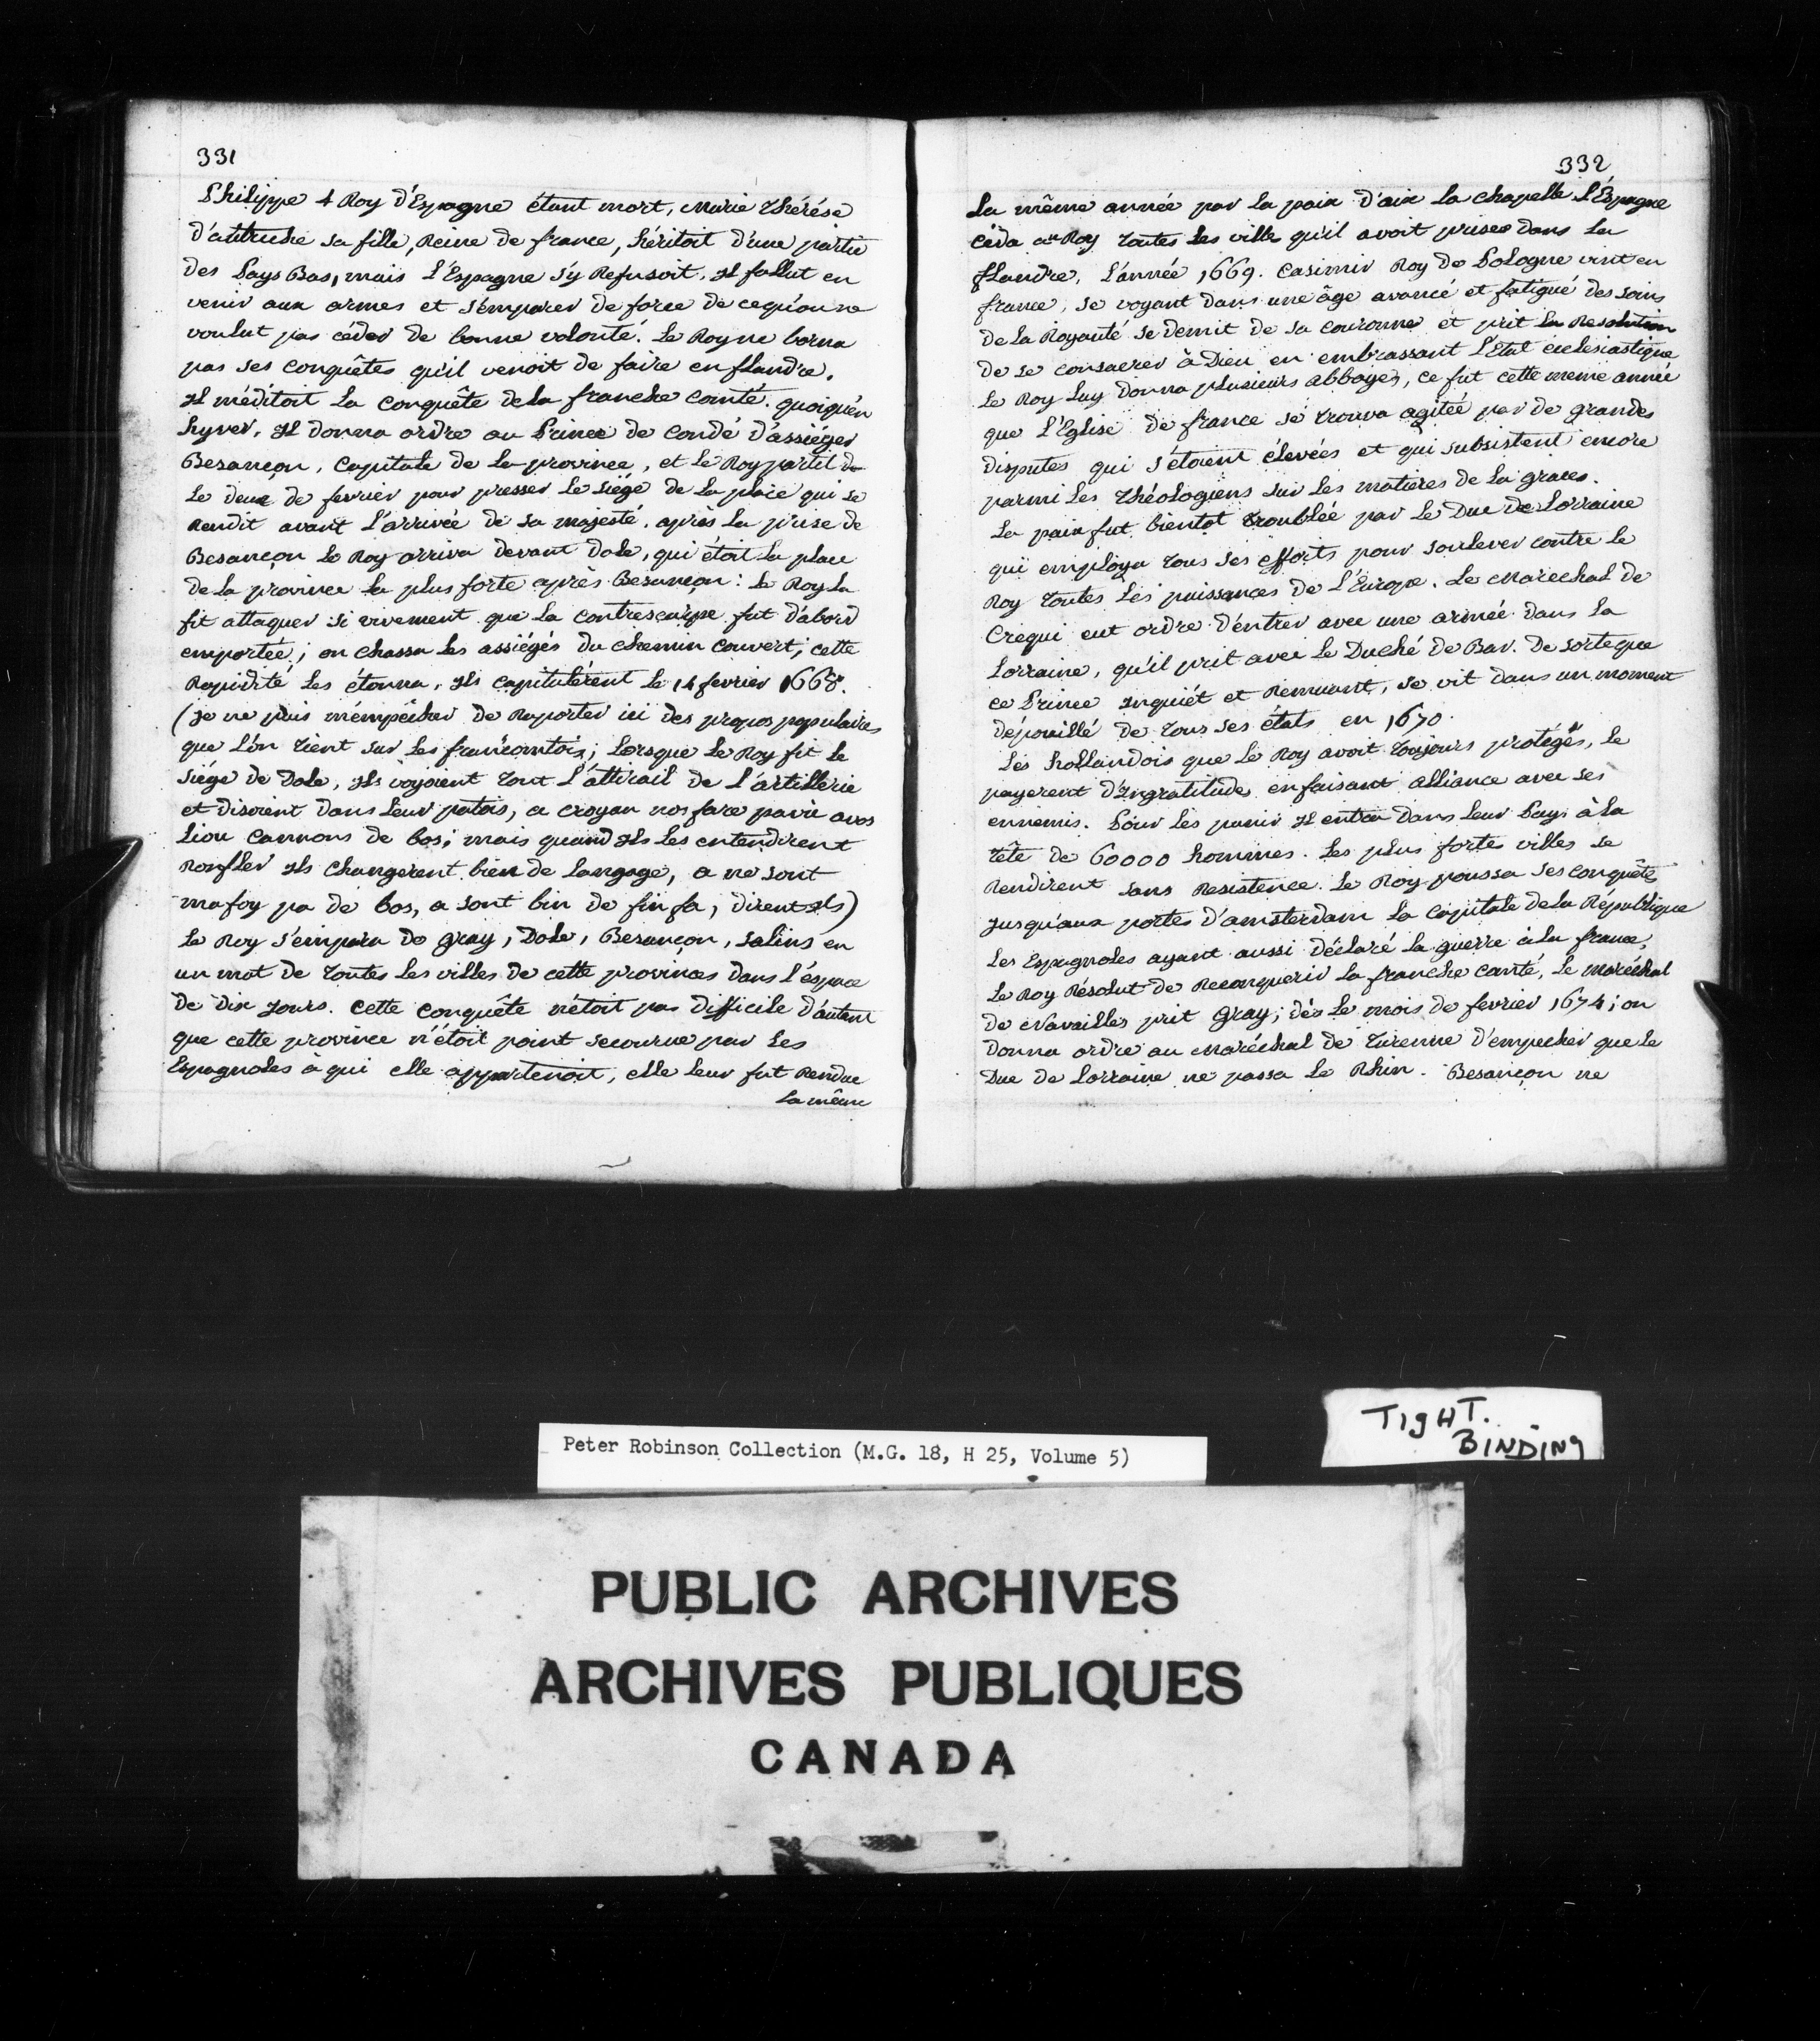 331
Philippe 4 Roy d'Espagne étant mort, Marie Thérése
d'autriche sa fille, Reine de france, héritoit d'une partie
des Pays Bas, mais l'Espagne s'y Refusoit. Il fallut en
venir aux armes et s'emparer de force de ce qu'on ne
voulut pas céder de bonne volonté. Le Roy ne borna
pas ses conquêtes qu'il venoit de faire en flandre.
Il méditoit la conquête de la franche comté. quoiqu'en
hyver. Il donna ordre au Prince de Condé d'assiéger
Besançon, Capitale de la province, et le Roy partit
le deux de fevrier pour presser le siége de la place qui se
Rendit avant l'arrivée de sa majesté. après la prise de
Besançon le Roy arriva devant Dole, qui étoit la place
de la province la plus forte après Besançon: le Roy la
fit attaquer si vivement que la contrescarpe fut d'abord
emportée; on chassa les assiégés du chemin couvert; cette
Rapidité les étonna, Ils capitulérent le 14 fevrier 1668.
(Je ne puis m'empêcher de Raporter ici des propos populaires
que l'on tient sur les francomtois; lorsque le Roy fit le
siége de Dole, Ils voyoient tout l'attirail de l'artillerie
et disoient dans leur patois, a croyan nos fare pavie avos
liou cannons de bos; mais quand Ils les entendirent
Ronfler Ils changerent bien de langage, a ne sont
mafoy pa de bos, a sont bin de fin fa, dirent Ils)
Le Roy s'empara de Gray, Dole, Besançon, Salins en
un mot de toutes les villes de cette provinces dans l'éspace
de dix Jours. Cette conquête n'étoit pas difficile d'autant
que cette province n'étoit point secourue par les
Espagnoles à qui elle appartenoit, elle leur fut Rendue
la même
332
la même année par la paix d'aix la chapelle l'Éspagne
céda au Roy toutes les villes qu'il avoit prises dans la
flandre, l'année 1669. Casimir Roy de Pologne vint en
france, se voyant dans une âge avancé et fatigué des soins
de la Royauté se demit de sa couronne et prit la Resolution
de se consacrer à Dieu en embrassant l'Etat eclesiastique
le Roy luy donna plusieurs abbayes, ce fut cette meme année
que l'Eglise de france se trouva agitée par de grandes
disputes qui s'étoient élevées et qui subsistent encore
parmi les Théologiens sur les matieres de la graces.
La paix fut bientot troublée par le Duc de Lorraine
qui employa tous ses efforts pour soulever contre le
Roy toutes les puissances de l'Europe. Le Marechal de
Crequi eut ordre d'éntrer avec une armée dans la
Lorraine, qu'il prit avec le Duché de Bar. De sorte que
ce Prince Inquiét et Remuant, se vit dans un moment
dépouillé de tous ses états en 1670.
Les hollandois que le Roy avoit toujours protégés, le
payerent d'Ingratitude en faisant alliance avec ses
ennemis. Pour les punir Il entra dans leur Pays à la
tête de 60000 hommes. Les plus fortes villes se
Rendirent sans Resistence. Le Roy poussa ses conquêtes
Jusqu'aux portes d'amsterdam la Capitale de la République
Les Espagnoles ayant aussi déclaré la guerre à la france,
Le Roy Résolut de Reconquerir la franche Comté, le Maréchal
de Navailles prit Gray, dès le mois de fevrier 1674; on
donna ordre au Maréchal de Turenne d'empecher que le
Duc de Lorraine ne passa le Rhin. Besançon ne
TIGHT.
BINDING
Peter Robinson Collection (M.G. 18, H 25, Volume 5)
PUBLIC ARCHIVES
ARCHIVES PUBLIQUES
CANADA